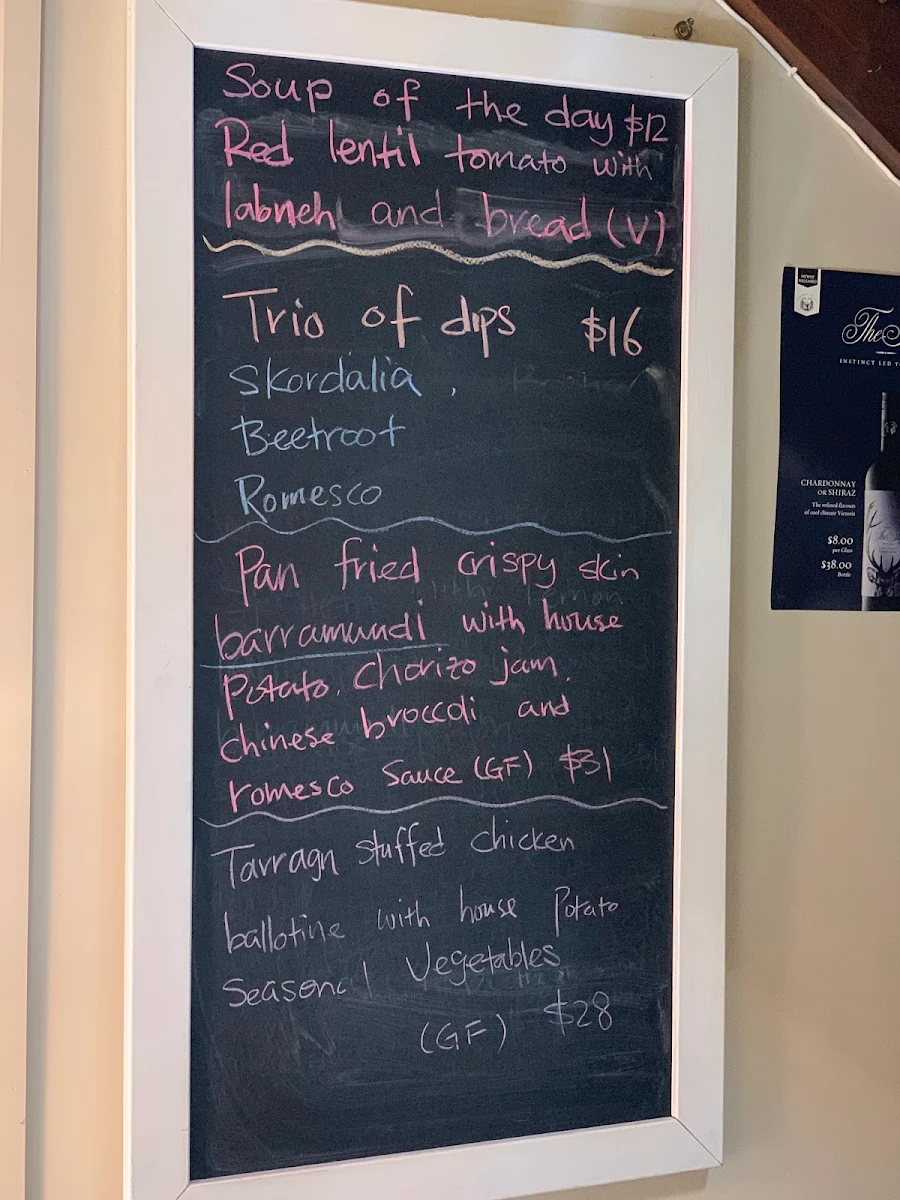 Soup of the day $12
Red lentil tomato with
labneh and bread (V)
Trio of dips $16
Skordalia,
Beetroot
Romesco
Pan fried crispy skin
barramundi with house
Potato. Chorizo jam.
chinese broccoli and
romesco Sauce (GF) $31
Tarragn stuffed chicken
ballotine with house Potato
Seasonal Vegetables
(GF) $28
The
INSTINCT LED
CHARDONNAY
OR SHIRAZ
The refined flavours
of cool climate Victoria
$8.00
per Glass
$38.00
Bottle